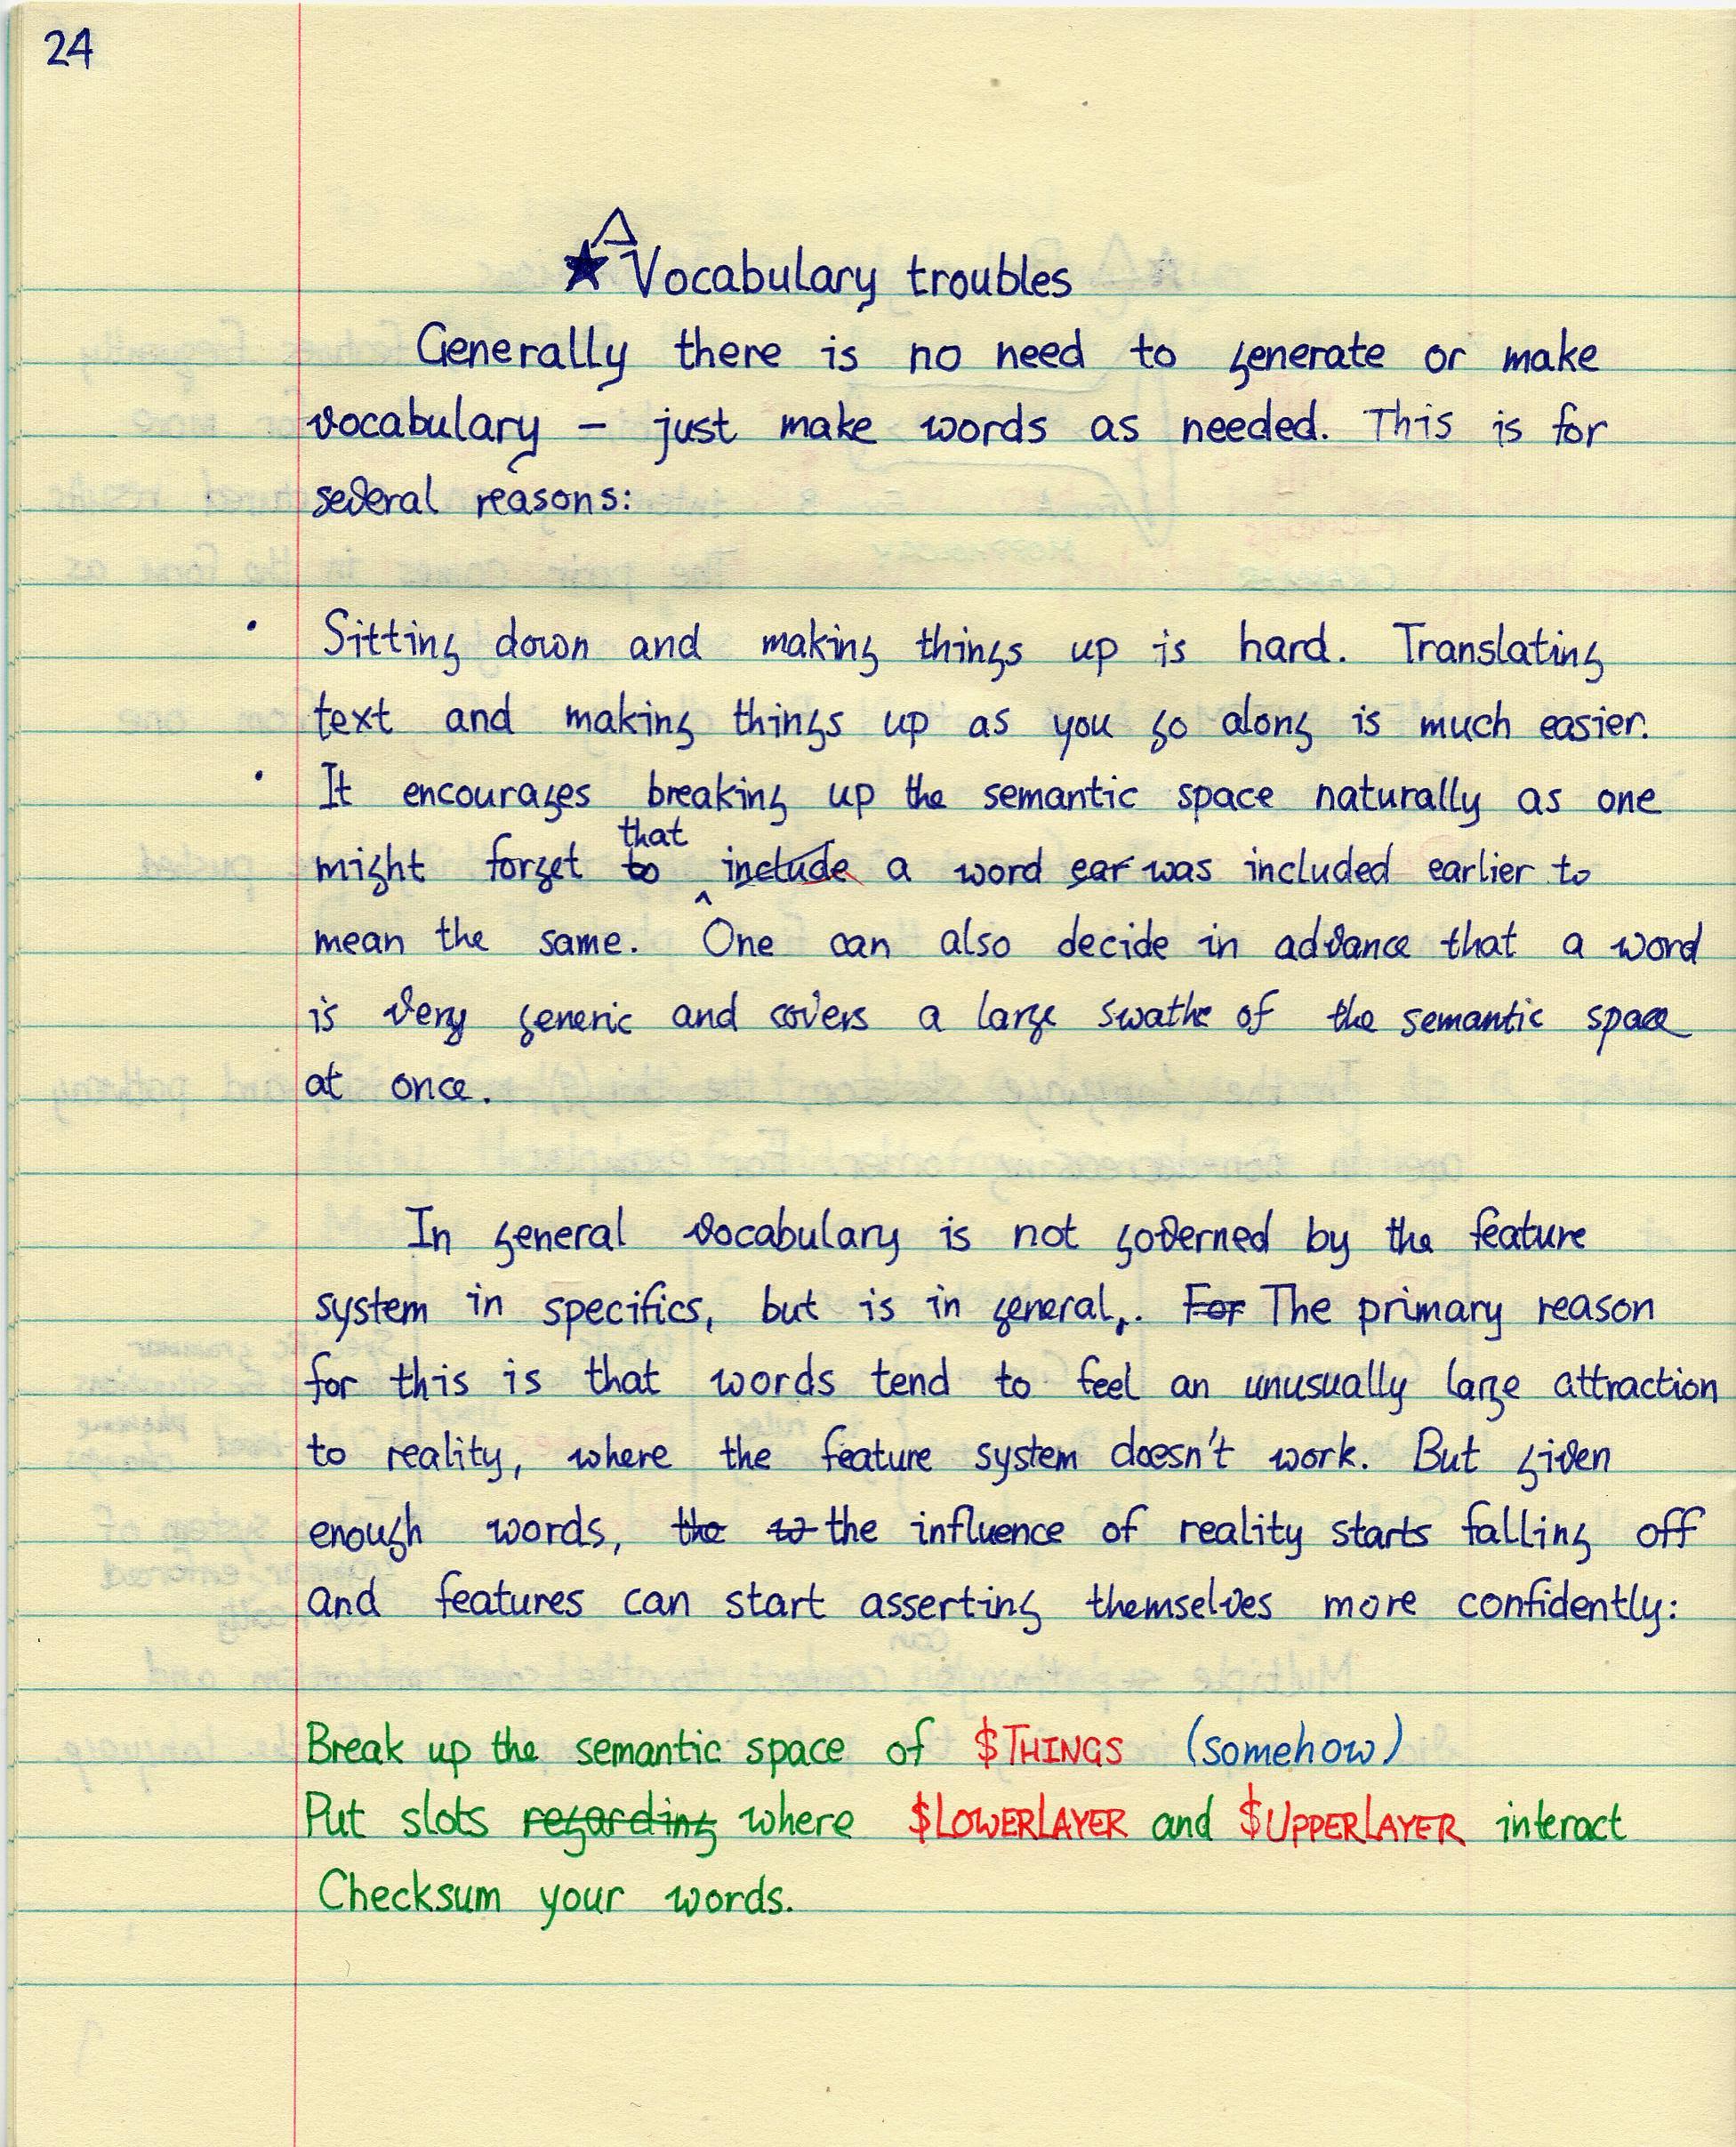 24
★△Vocabulary troubles
Generally there is no need to generate or make
vocabulary – just make words as needed. This is for
several reasons:
· Sitting down and making things up is hard. Translating
text and making things up as you go along is much easier.
· It encourages breaking up the semantic space naturally as one
that
might forget ~~to~~ ^ ~~include~~ a word ~~ear~~ was included earlier to
mean the same. One can also decide in advance that a word
is very generic and covers a large swathe of the semantic space
at once.
In general vocabulary is not governed by the feature
system in specifics, but is in general,. ~~For~~ The primary reason
for this is that words tend to feel an unusually large attraction
to reality, where the feature system doesn't work. But given
enough words, ~~the~~ ~~w~~ the influence of reality starts falling off
and features can start asserting themselves more confidently:
Break up the semantic space of $THINGS (somehow)
Put slots ~~regarding~~ where $LOWERLAYER and $UPPERLAYER interact
Checksum your words.